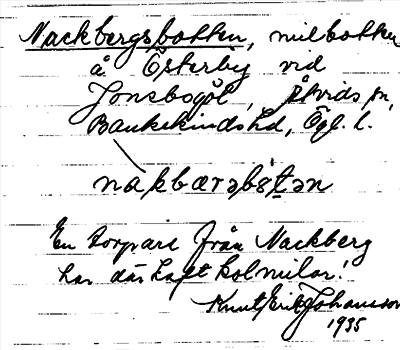 Nackbergsbotten, milbotten
å Österby vid
Jonsbogöl, Åtvids sn,
Bankekinds hd, Ögl. l.
nakbærəbstən
En torpare från Nackberg
har där haft kolmilor!
Knut Erik Johansson
1935